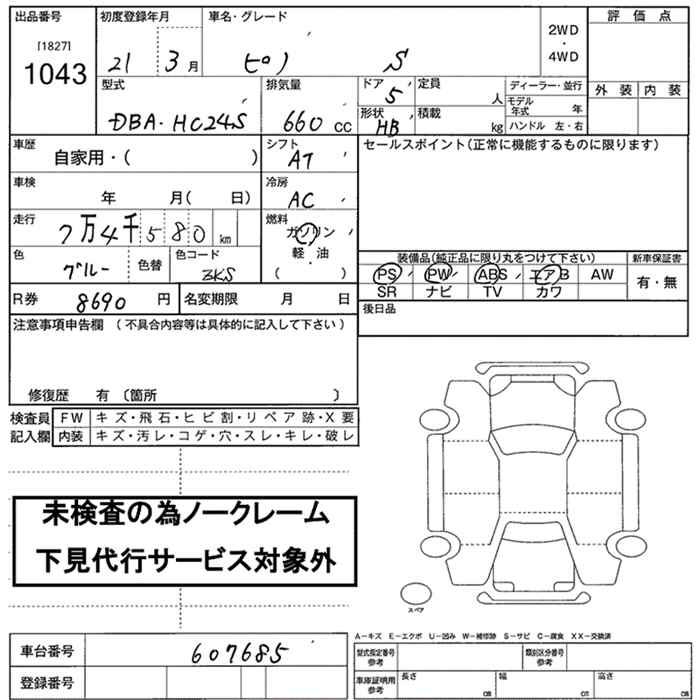 出品番号 初度登録年月 車名・グレード 評価点
[1827]
1043 21 3月 ピノ S 2WD・4WD
外装 内装
型式 排気量 ドア 定員 ディーラー・並行
5 人 モデル年式 年
DBA・HC24S 660cc 形状 HB 積載 kg ハンドル 左・右
車歴 自家用・( ) シフト AT セールスポイント(正常に機能するものに限ります)
車検 年 月( 日) 冷房 AC
走行 7万4千580km 燃料 ガソリン・軽油・( )
色 ブルー 色替 色コード
装備品(純正品に限り丸をつけて下さい) 新車保証書
PS PW ABS エアB AW 有・無
SR ナビ TV カワ
R券 8690円 名変期限 月 日 後日品
注意事項申告欄 (不具合内容等は具体的に記入して下さい)
修復歴 有 〔箇所 〕
検査員 FW キズ・飛石・ヒビ割・リペア跡・X要
記入欄 内装 キズ・汚レ・コゲ・穴・スレ・キレ・破レ
未検査の為ノークレーム
下見代行サービス対象外
スペア
A-キズ E-エクボ U-凹み W-補修跡 S-サビ C-腐食 XX-交換済
車台番号 607685 型式指定番号 参考 類別区分番号 参考
登録番号 車庫証明用 参考 長さ cm 幅 cm 高さ cm